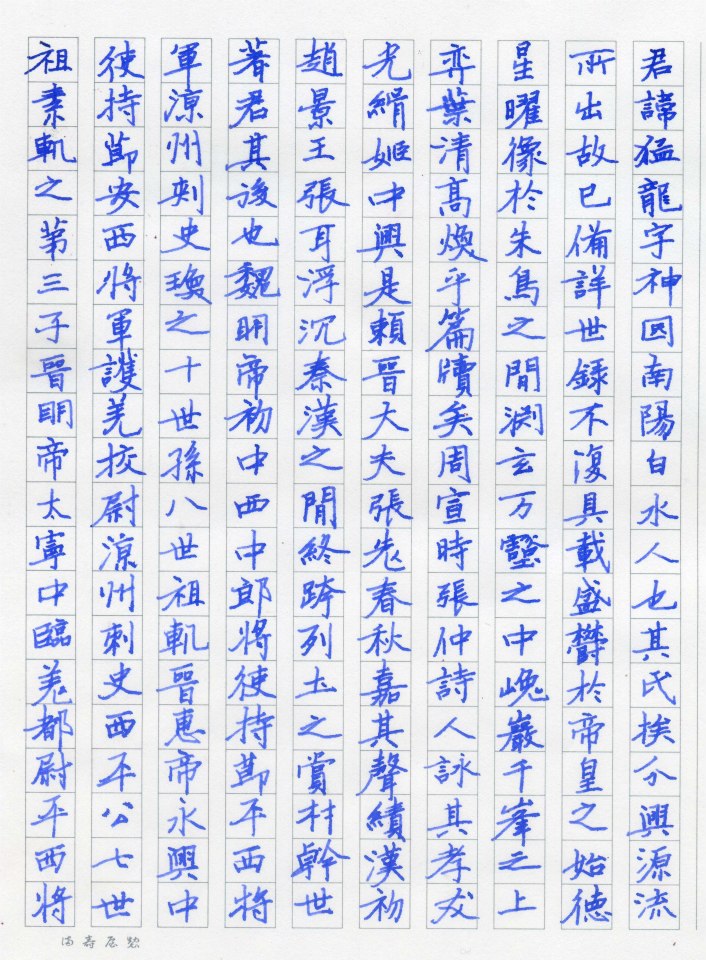 君諱猛龍字神囧南陽白水人也其氏挨分興源流
所出故已備詳世録不復具載盛欝於帝皇之始德
星曜像於朱鳥之間渕玄万壑之中巉巖千峯之上
弈葉清高煥乎篇牘矣周宣時張仲詩人詠其孝友
光緝姬中興是賴晉大夫張老春秋嘉其聲績漢初
趙景王張耳浮沉秦漢之間終跨列土之賞材幹世
著君其後也魏明帝初中西中郎將使持節平西將
軍涼州刺史瓊之十世孫八世祖軌晉惠帝永興中
使持節安西將軍護羌挍尉涼州刺史西平公七世
祖素軌之第三子晉明帝太寧中臨羌都尉平西將